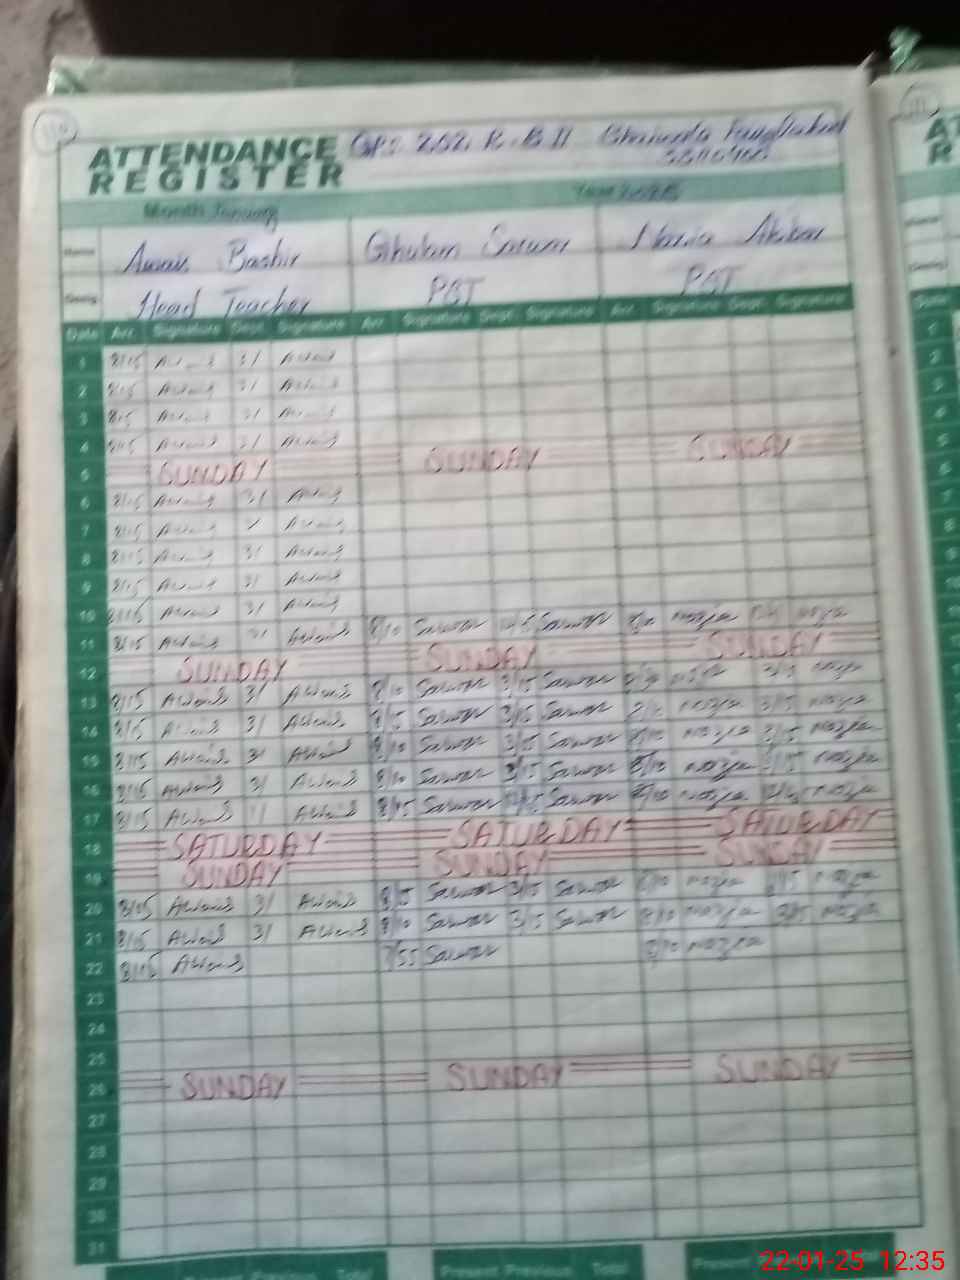 ATTENDANCE REGISTER
GPS 262 R.B II
Month January Year 2025
Name Awais Bashir Ghulam Sarwar Nazia Akbar
Desig. Head Teacher PST PST
Date Arr. Signature Dept. Signature Arr. Signature Dept. Signature Arr. Signature Dept. Signature
1 8/15 Awais 3/ Awais
2 8/15 Awais 3/ Awais
3 8/15 Awais 3/ Awais
4 8/15 Awais 3/ Awais
5 SUNDAY SUNDAY SUNDAY
6 8/15 Awais 3/ Awais
7 8/15 Awais Awais
8 8/15 Awais 3/ Awais
9 8/15 Awais 3/ Awais
10 8/15 Awais 3/ Awais
11 8/15 Awais 3/ Awais 8/10 Sarwar Sarwar Nazia Nazia
12 SUNDAY SUNDAY SUNDAY
13 8/15 Awais 3/ Awais 8/10 Sarwar 3/15 Sarwar Nazia 3/15 Nazia
14 8/15 Awais 3/ Awais 8/15 Sarwar 3/15 Sarwar 8/10 Nazia 3/15 Nazia
15 8/15 Awais 3/ Awais 8/10 Sarwar 3/15 Sarwar 8/10 Nazia 3/15 Nazia
16 8/15 Awais 3/ Awais 8/10 Sarwar 3/15 Sarwar 8/10 Nazia 3/15 Nazia
17 8/15 Awais Awais 8/15 Sarwar Sarwar 8/10 Nazia Nazia
18 SATURDAY SATURDAY SATURDAY
19 SUNDAY SUNDAY SUNDAY
20 8/15 Awais 3/ Awais 8/15 Sarwar 3/15 Sarwar 8/10 Nazia 3/15 Nazia
21 8/15 Awais 3/ Awais 8/10 Sarwar 3/15 Sarwar 8/10 Nazia 3/15 Nazia
22 8/15 Awais 7/55 Sarwar 8/10 Nazia
23
24
25
26 SUNDAY SUNDAY SUNDAY
27
28
29
30
31
22-01-25 12:35